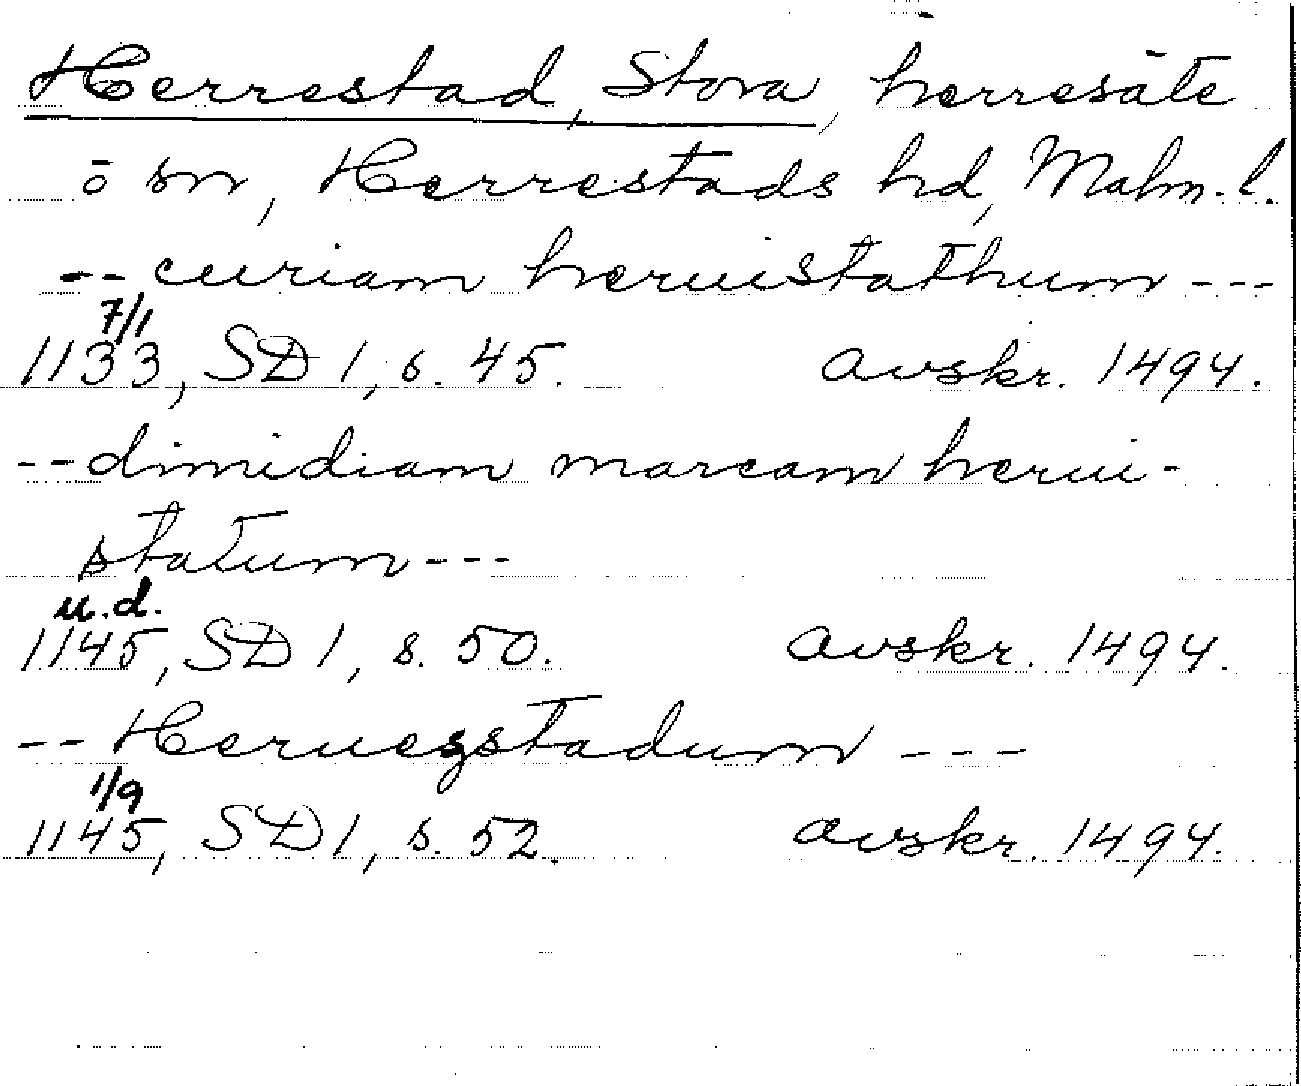 Herrestad, Stora, herresäte
ö sn, Herrestads hd, Malm. l.
-- curiam heruistathum ---
7/1
1133, SD 1, s. 45. avskr. 1494.
-- dimidiam marcam herui-
statum ---
u.d.
1145, SD 1, s. 50. avskr. 1494.
-- Heruegstadum ---
1/9
1145, SD 1, s. 52. avskr. 1494.